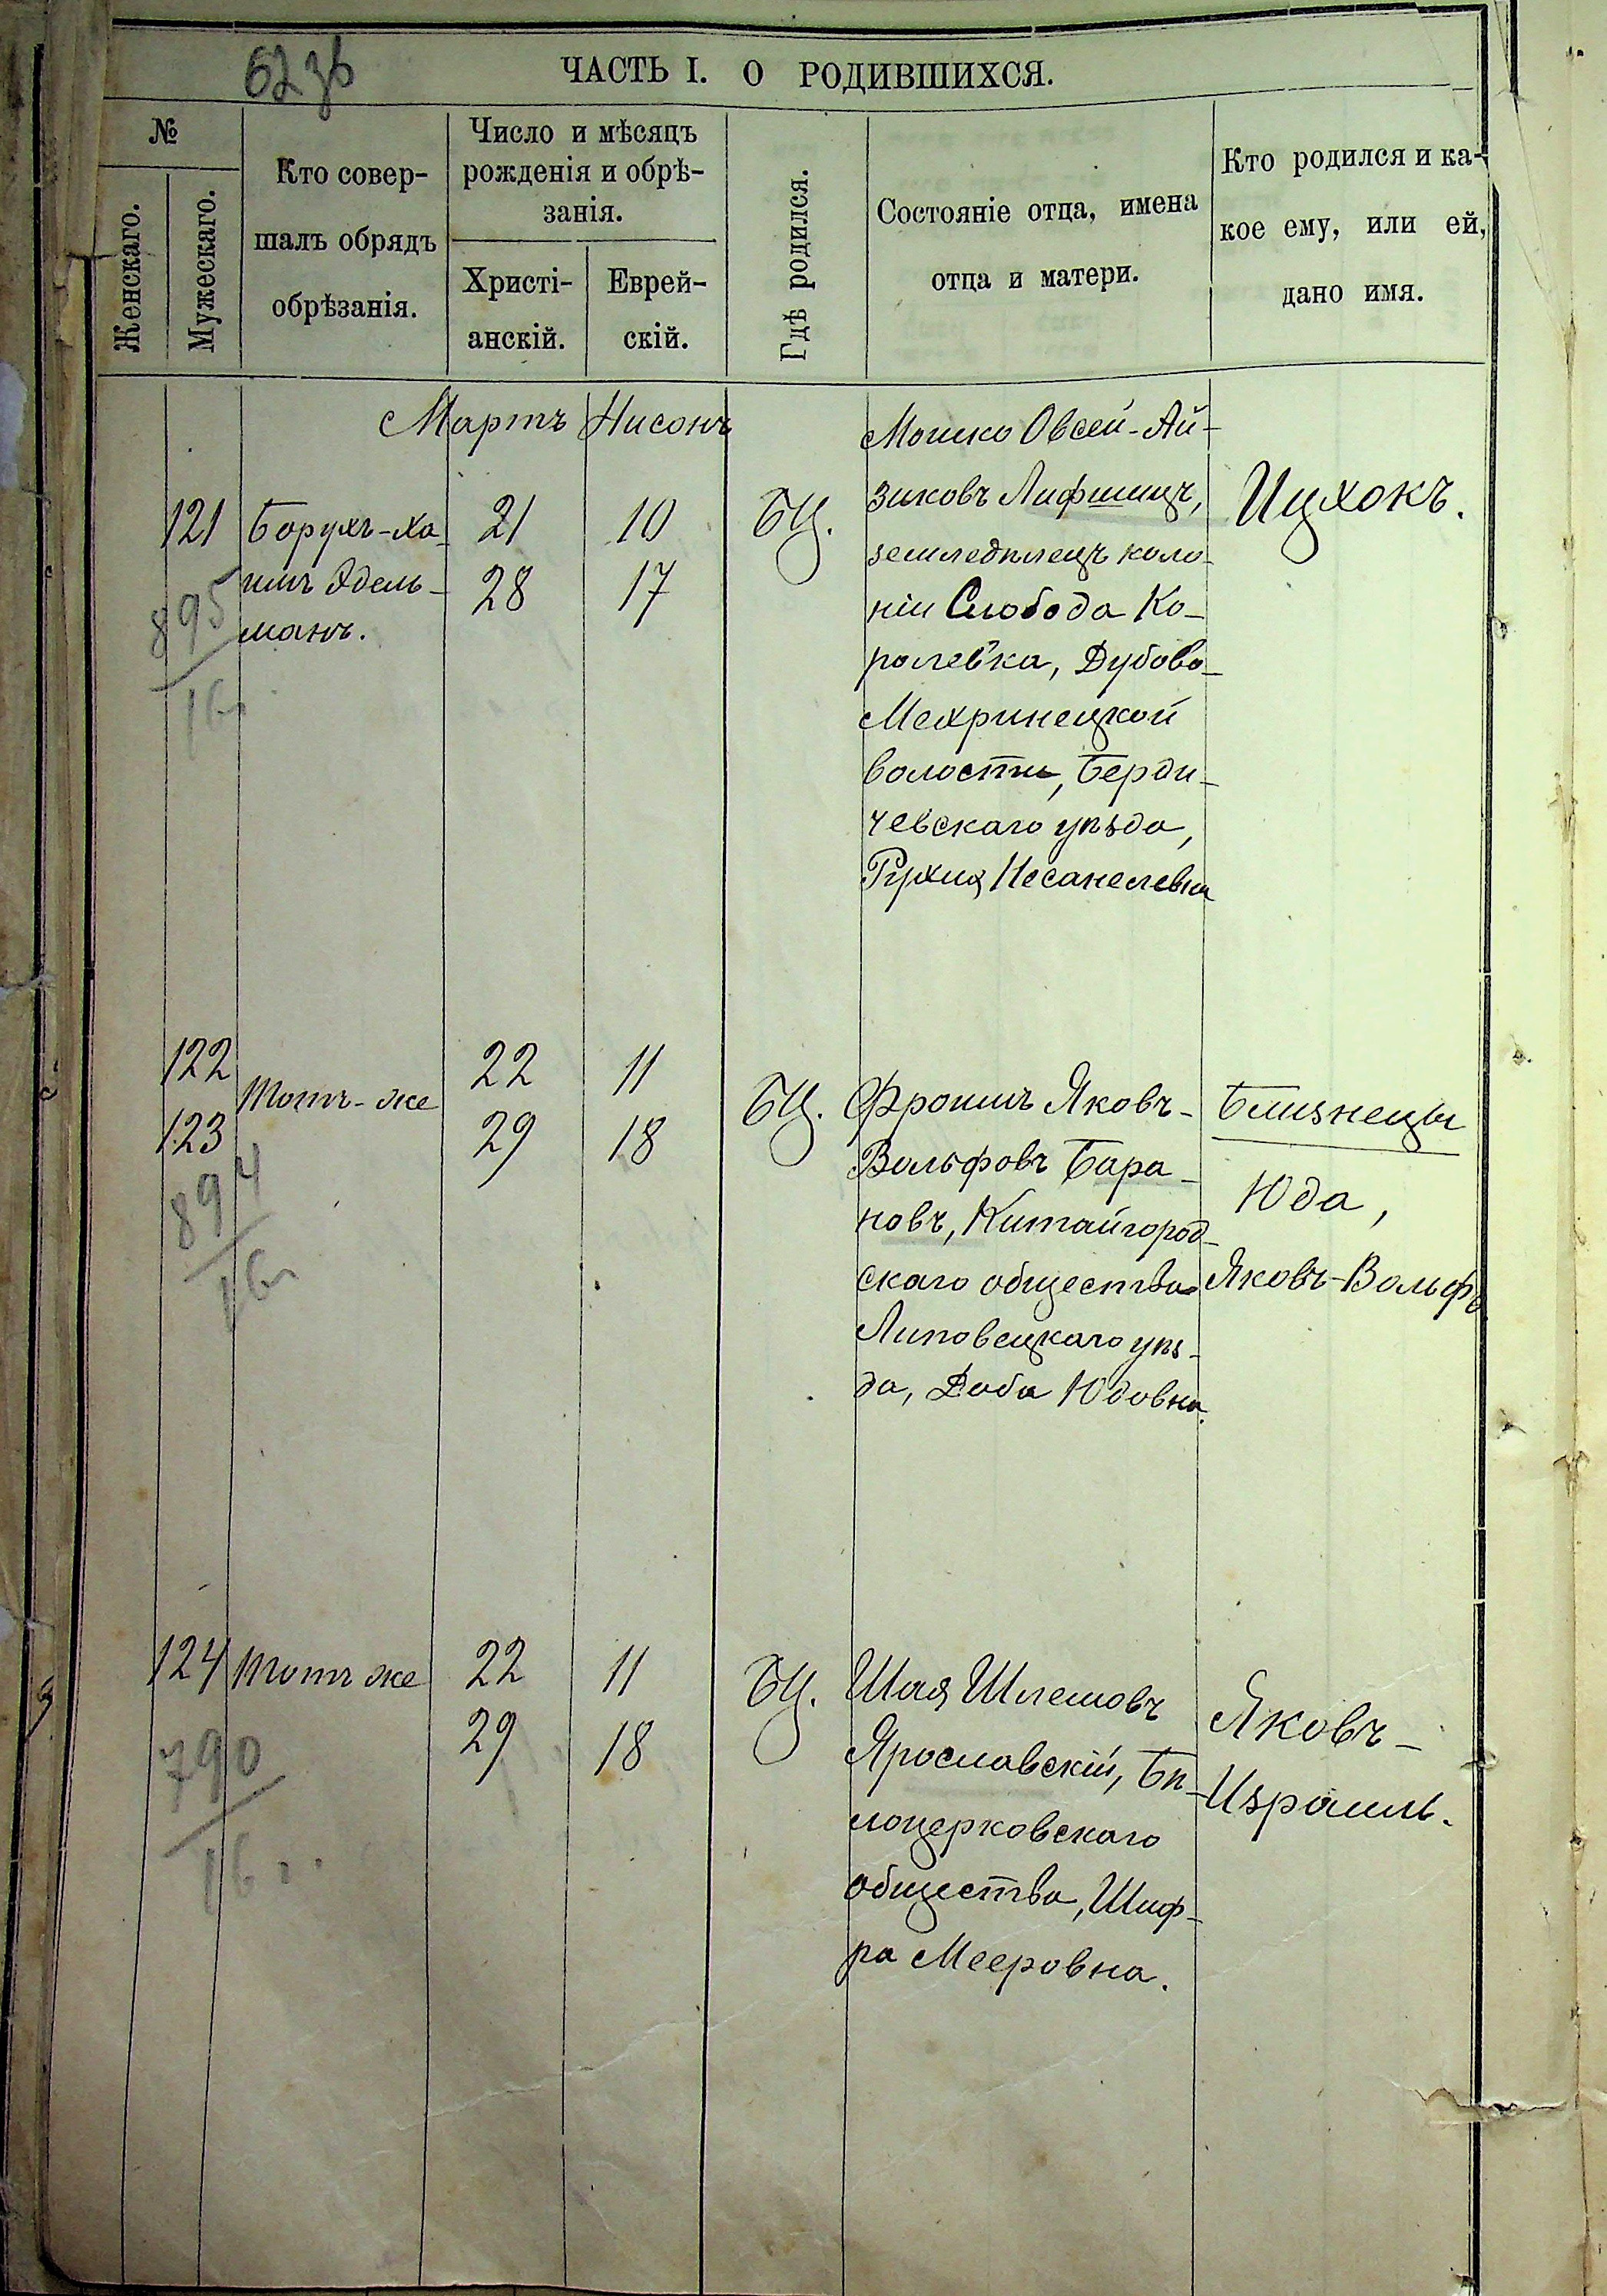 62 зв
ЧАСТЬ I. О РОДИВШИХСЯ.
№
Женскаго.
Мужескаго.
Кто совер-
шалъ обрядъ
обрѣзанія.
Число и мѣсяцъ
рожденія и обрѣ-
занія.
Христі-
анскій.
Еврей-
скій.
Гдѣ родился.
Состояніе отца, имена
отца и матери.
Кто родился и ка-
кое ему, или ей,
дано имя.
Мартъ Нисонъ
121
895
Борухъ-Ха-
имъ Эдель-
манъ.
21
28
10
17
БЦ.
Мошко Овсей-Ай-
зиковъ Лифшицъ,
земледѣлецъ коло-
ніи Слобода Ко-
ролевка, Дубово-
Мехринецкой
волости, Берди-
чевскаго уѣзда,
Рухля Несанелевна
Ицхокъ.
122
123
894
16
Тотъ-же
22
29
11
18
БЦ.
Фроимъ Яковъ-
Вольфовъ Бара-
новъ, Китайгород-
скаго общества
Липовецкаго уѣз-
да, Доба Юдовна.
Близнецы
Юда,
Яковъ-Вольфъ
124
790
16
Тотъ же
22
29
11
18
БЦ.
Шая Шлемовъ
Ярославскій, Бѣ-
лоцерковскаго
общества, Шиф-
ра Мееровна.
Яковъ-
Израиль.